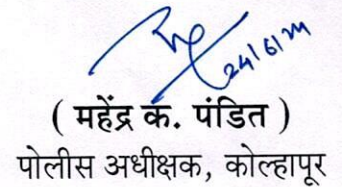 24/6/24
( महेंद्र क. पंडित )
पोलीस अधीक्षक, कोल्हापूर